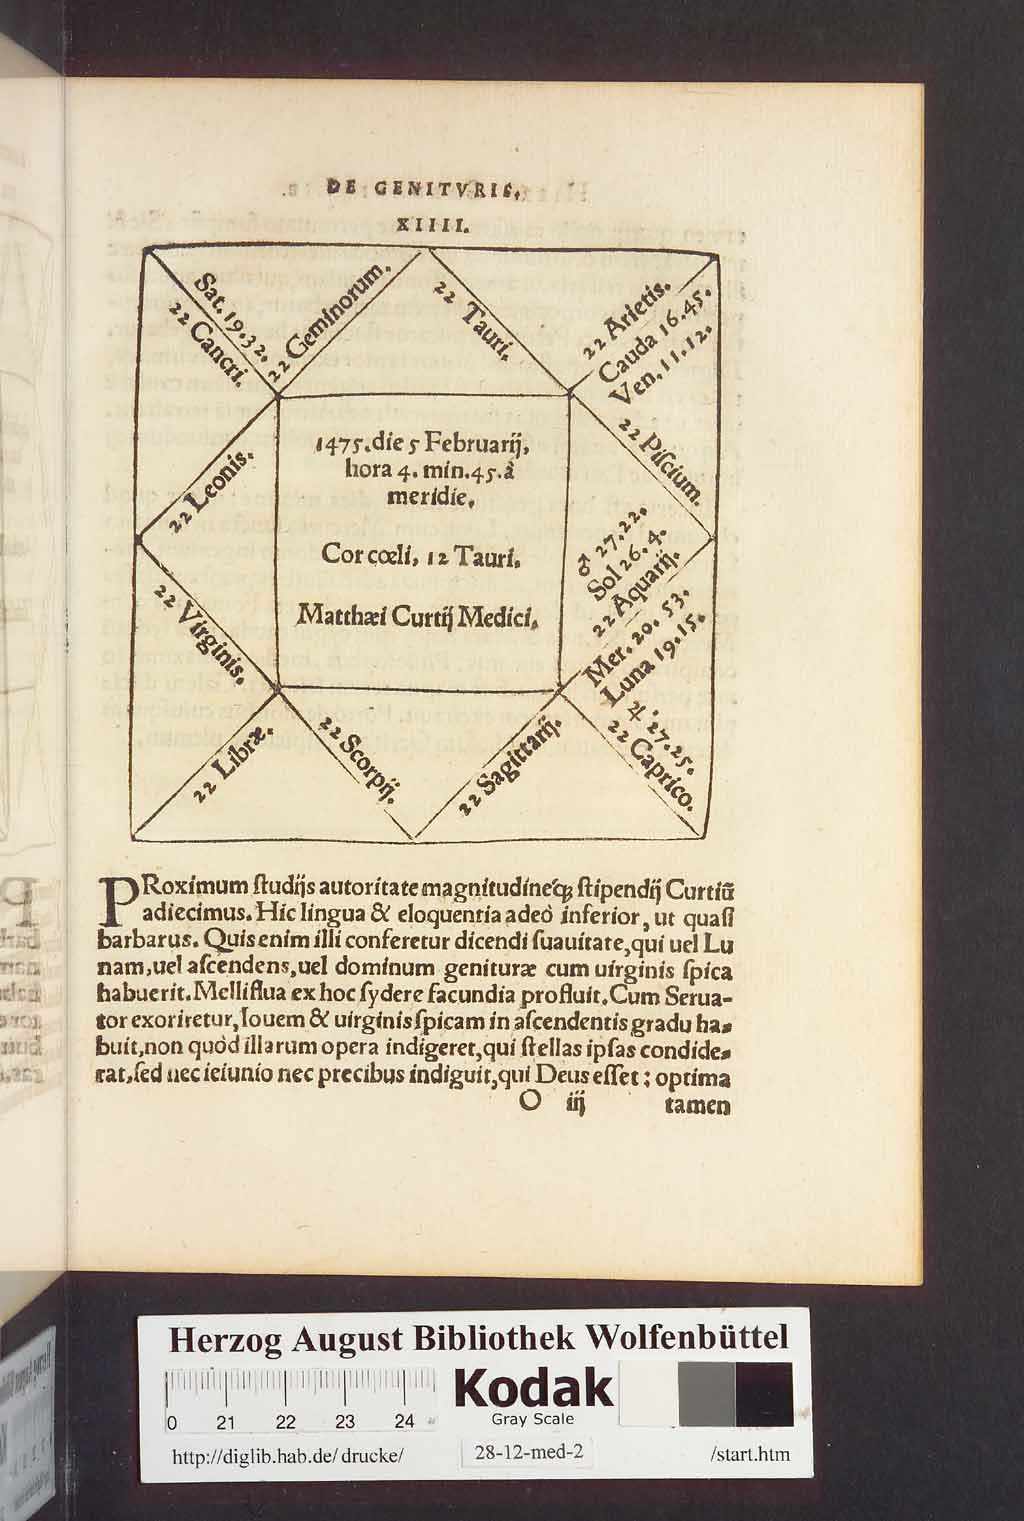 DE GENITVRIS.
XIIII.
Sat. 19. 32.
22 Cancri.
22 Geminorum.
22 Tauri.
22 Arietis.
Cauda 16. 45.
Ven. 11. 12.
22 Leonis.
22 Piscium.
1475. die 5 Februarij,
hora 4. min. 45. à
meridie.
Cor cœli, 12 Tauri.
Matthæi Curtij Medici.
♂ 27. 22.
Sol 26. 4.
22 Aquarij.
22 Virginis.
Mer. 20. 53.
Luna 19. 15.
♃ 27. 25.
22 Caprico.
22 Libræ.
22 Scorpij.
22 Sagittarij.
PRoximum ſtudijs autoritate magnitudineq́; ſtipendij Curtiũ
adiecimus. Hic lingua & eloquentia adeò inferior, ut quaſi
barbarus. Quis enim illi conferetur dicendi ſuauitate, qui uel Lu
nam, uel aſcendens, uel dominum genituræ cum uirginis ſpica
habuerit. Melliflua ex hoc ſydere facundia profluit. Cum Serua-
tor exoriretur, Iouem & uirginis ſpicam in aſcendentis gradu ha-
buit, non quòd illarum opera indigeret, qui ſtellas ipſas condide-
rat, ſed nec ieiunio nec precibus indiguit, qui Deus eſſet: optima
O iij tamen
Herzog August Bibliothek Wolfenbüttel
0 21 22 23 24
Kodak
Gray Scale
http://diglib.hab.de/drucke/ 28-12-med-2 /start.htm